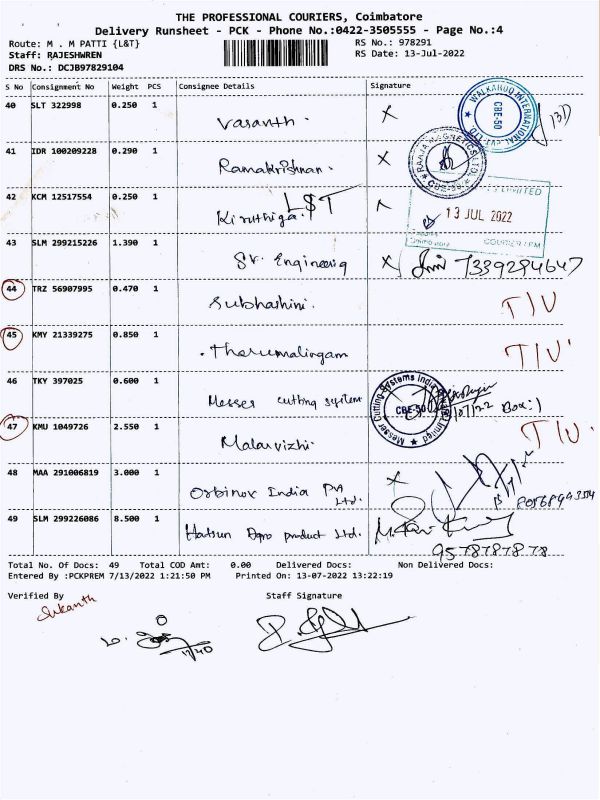 THE PROFESSIONAL COURIERS, Coimbatore
Delivery Runsheet - PCK - Phone No.:0422-3505555 - Page No.:4
Route: M . M PATTI {L&T} RS No.: 978291
Staff: RAJESHWREN RS Date: 13-Jul-2022
DRS No.: DCJB97829104
S No Consignment No Weight PCS Consignee Details Signature
40 SLT 322998 0.250 1 Vasanth X
WALKAROO INTERNATIONAL PVT LTD CBE-50
41 IDR 100209228 0.290 1 Ramakrishnan. X
RAAJA MAGNETICS LTD CBE-50
42 KCM 12517554 0.250 1 Kiruthiga. L&T
LIMITED
13 JUL 2022
COURIER / PM
43 SLM 299215226 1.390 1 Sr. Engineering X 7339294647
44 TRZ 56907995 0.470 1 Subhashini. T/V
45 KMY 21339275 0.850 1 . Tharumalingam T/V
46 TKY 397025 0.600 1 Messer cutting system Box:1
Messer Cutting Systems India Private Limited CBE-50
47 KMU 1049726 2.550 1 Malarvizhi. T/V.
48 MAA 291006819 3.000 1 Orbinox India Pvt Ltd. X
49 SLM 299226086 8.500 1 Hatsun Agro product Ltd.
9578787878
Total No. Of Docs: 49 Total COD Amt: 0.00 Delivered Docs: Non Delivered Docs:
Entered By :PCKPREM 7/13/2022 1:21:50 PM Printed On: 13-07-2022 13:22:19
Verified By Staff Signature
Srikanth